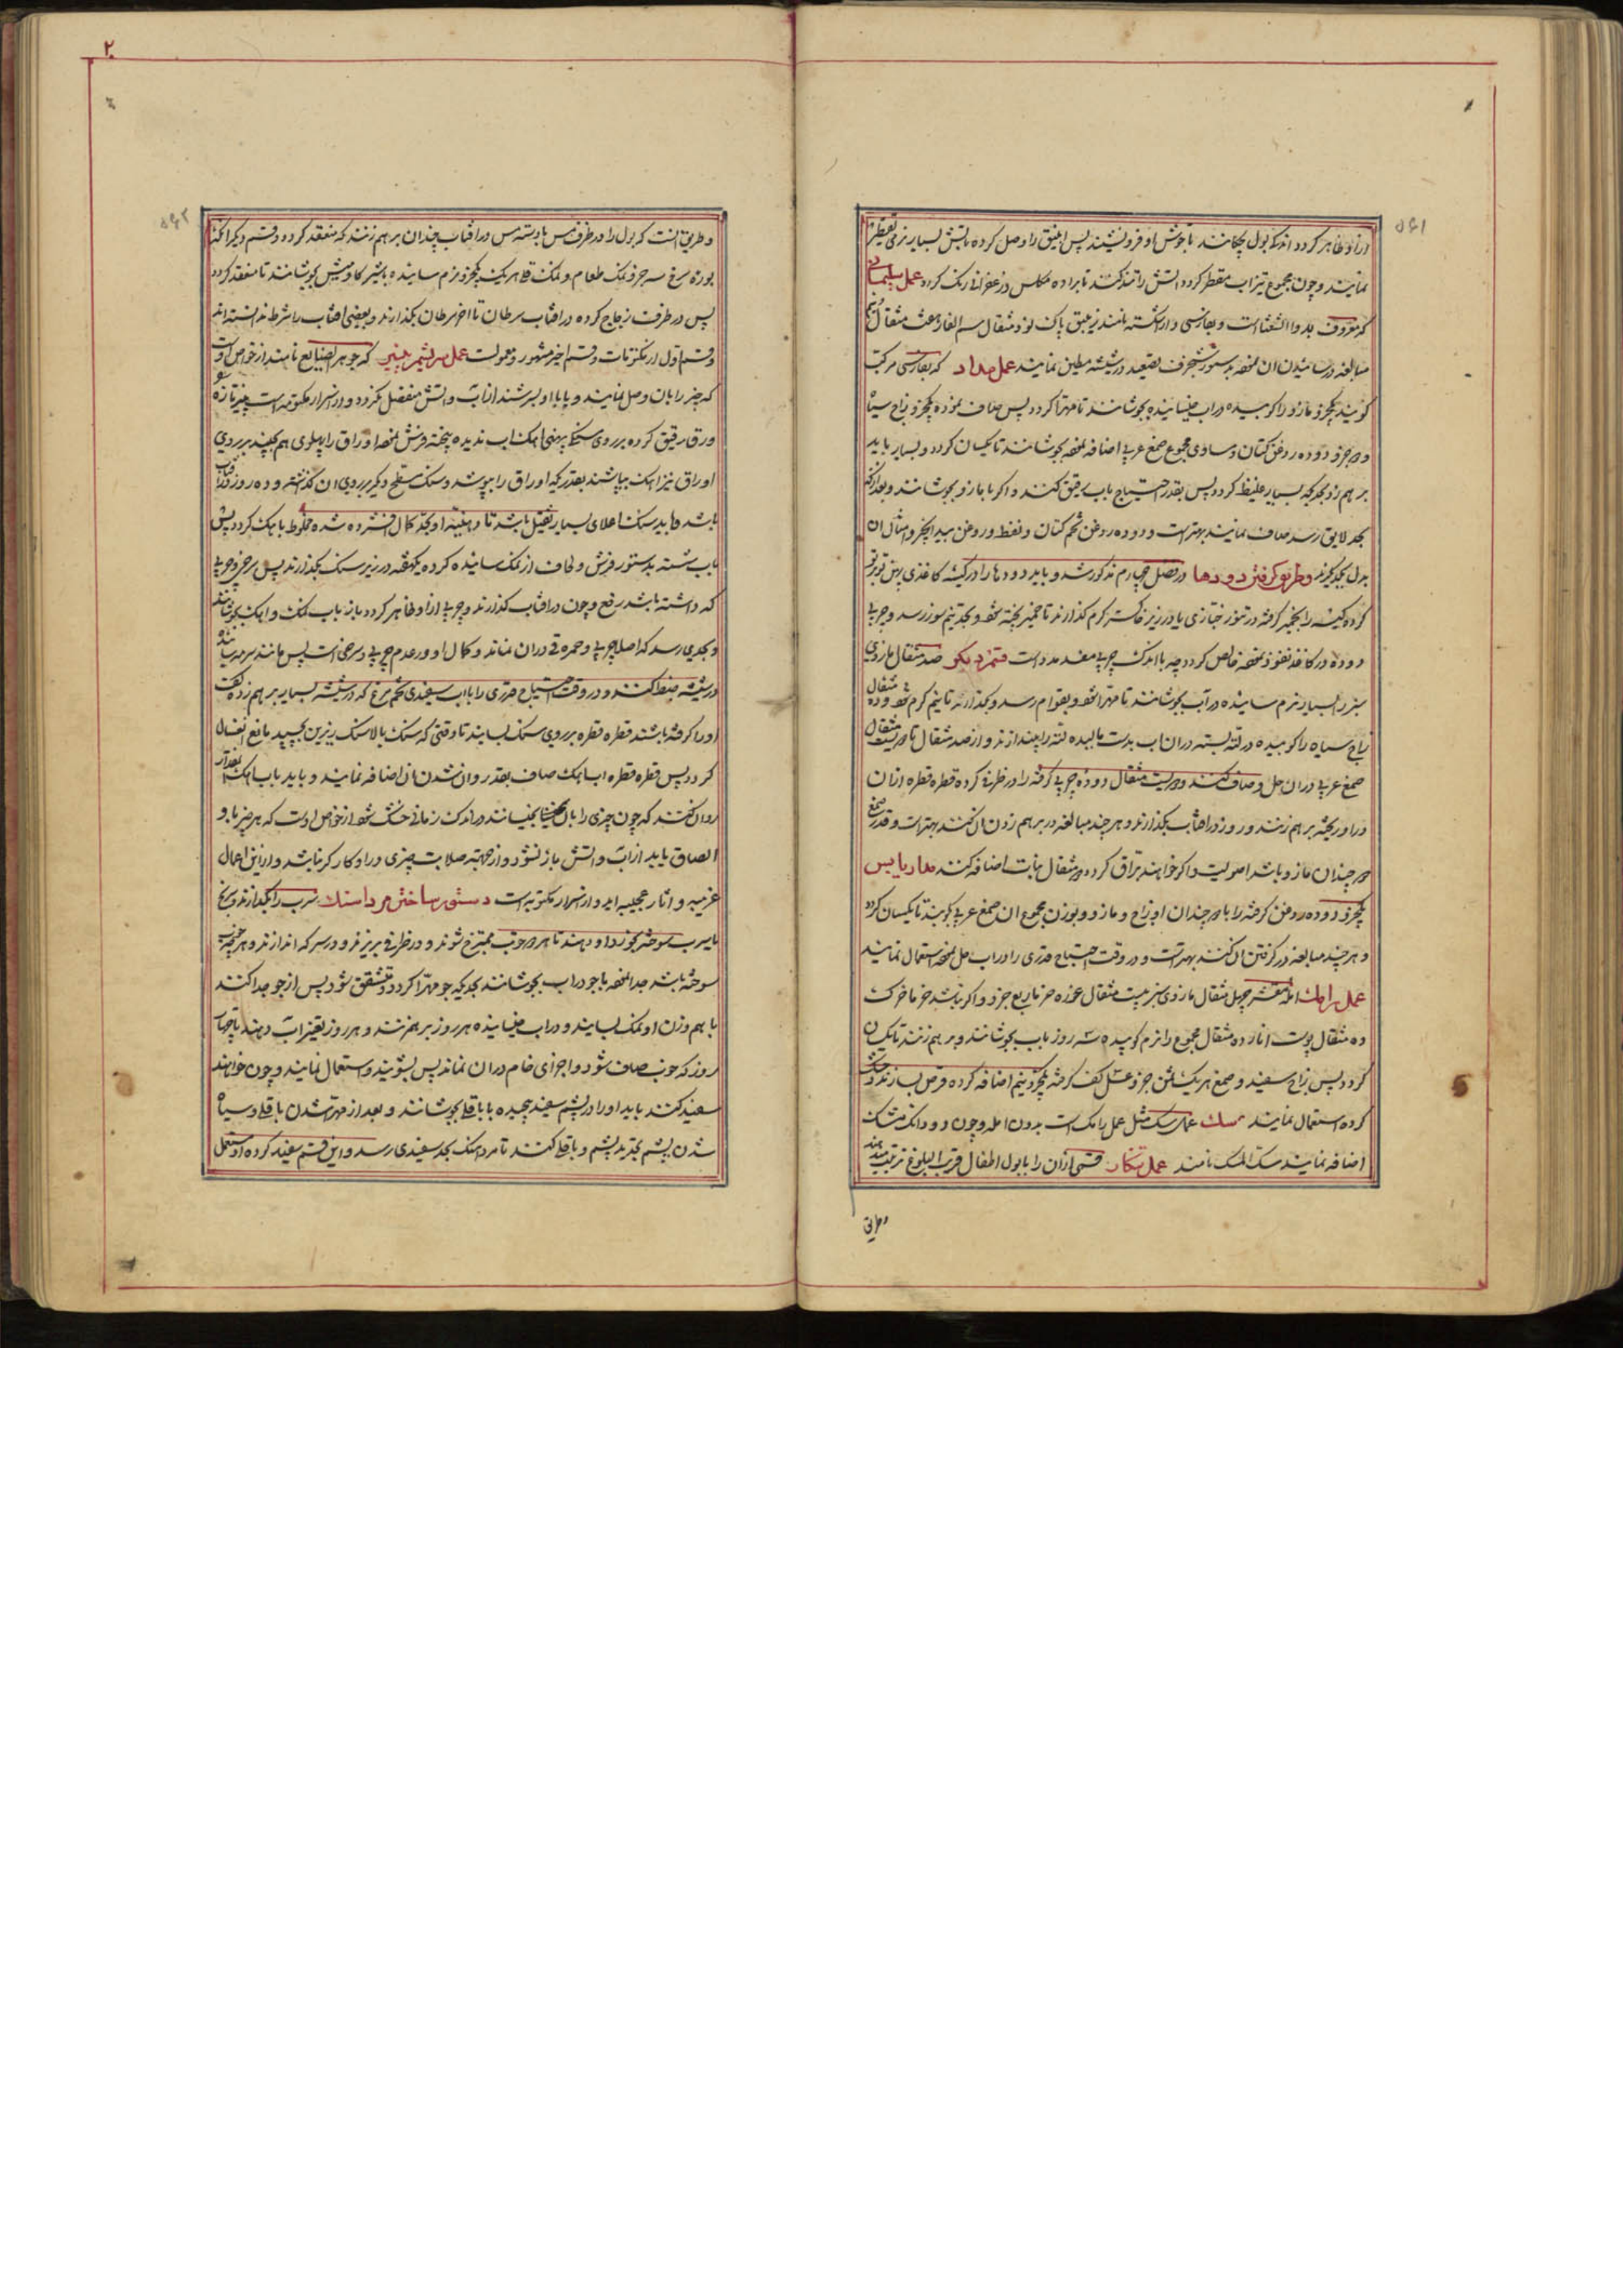 ۵۶۱
ازو ظاهر کردد اندک بول بچکانند تا جوش او فرو نشیند پس انبیق را وصل کرده باتش بسیار نرمی تقطیر
نمایند و چون مجموع تیزاب مقطر کردد اتش را تند کنند تا براده مکلس و زعفرانی رنک کردد عمل سلیمانی
که معروف بدوا الشعث است و بفارسی دارشکنه نامند زیبق پاک نود مثقال سم الفار هشت مثقال
مبالغه در سائیدن ان نموده بدستور شنجرف تصعید در شیشه مطین نمایند عمل مداد که بفارسی مرکب
کویند یکجزو مازو را کوبیده در اب خیسانیده بجوشانند تا مهرا کردد پس صاف نموده یکجزو زاج سیاه
و جزو دوده روغن کتان و مساوی مجموع صمغ عربی اضافه نموده بجوشانند تا یکسان کردد و بسیار باید
بر هم زد بحدیکه بسیار غلیظ کردد پس بقدر احتیاج باب رقیق کنند و اکر با مازو بجوشانند و بعد از انکه
بحد لایق رسد صاف نمایند بهتر است و دوده روغن تخم کتان و نفط و روغن بید انجیر و امثال ان
بدل یکدیکرند و طریق کرفتن دودها در فصل چهارم مذکور شد و باید دودها را در کیسه کاغذی پهن تو بر تو
کرده کیسه را بخمیر کرفته در تنور خبازی یا در زیر خاکستر کرم کذارند تا خمیر پخته شود و بحد نیم سوز رسد و چربی
دوده در کاغذ نفوذ نموده خالص کردد چه با اندک چربی مفسد مداد است قسم دیکر صد مثقال مازوی
سبز را بسیار نرم سائیده در آب بجوشانند تا مهرا شود و بقوام رسد و بگذارند تا نیم کرم شود و ده مثقال
زاج سیاه را کوبیده در لته بسته در ان اب بدست مالیده لته را بیندازند و از صد مثقال تا دویست مثقال
صمغ عربی در ان حل و صاف کنند و بیست مثقال دوده چربی کرفته را در ظرفی کرده قطره قطره از ان
در او ریخته بر هم زنند و روز در افتاب بکذارند و هر چند مبالغه در بر هم زدن ان کنند بهتر است و قدر صمغ
چندان مازو باشد اصولیت و اکر خواهند براق کردد مثقال نبات اضافه کنند مداد یابس
یکجزو دوده روغن کرفته را با چندان او زاج و مازو و بوزن مجموع ان صمغ عربی کوبند تا یکسان کردد
و هر چند مبالغه در کرفتن ان کنند بهتر است و در وقت احتیاج قدری را در اب حل نموده استعمال نمایند
عمل رامک امله مقشر چهل مثقال مازوی سبز بیست مثقال غوره خرما ربع جزو و اکر نباشد خرما خرک
ده مثقال پوست انار ده مثقال مجموع را نرم کوبیده سه روز باب بجوشانند و بر هم زنند تا یکسان
کردد پس زاج سفید و صمغ هر یک ثمن جزو عسل کف کرفته یکجزو نیم اضافه کرده قرص سازند و خشک
کرده استعمال نمایند سک عمل سک مثل عمل رامک است بدون امله و چون دو دانک مشک
اضافه نمایند سک المسک نامند عمل تنکار قسمی از ان را با بول اطفال قریب البلوغ ترتیب دهند
و طریق
۲
۵۶۲
و طریق انست که بول را در ظرف مس با دسته مس در افتاب چندان بر هم زنند که منعقد کردد و قسم دیکر انکه
بوره سرخ سه جزو نمک طعام و نمک قلی هر یک یکجزو نرم سائیده با شیر کاومیش بجوشانند تا منعقد کردد
پس در ظرف زجاج کرده در افتاب سرطان تا اخر سرطان بکذارند و بعضی افتاب را شرط ندانسته اند
و قسم اول از مکتومات و قسم اخیر مشهور و معمولست عمل سریشم پنیر که جوهر الصنایع نامند از خواص اوست
که چیز را بان وصل نمایند و پایا او لبرشند از اب و اتش منفصل نکردد و از اسرار مکتومه است پنیر تازه
ورق رقیق کرده بر روی سنک پهنی اهک اب ندیده پخته فرش نموده اوراق را پهلوی هم بچینند بر روی
اوراق نیز اهک بپاشند بقدریکه اوراق را بپوشد و سنک مسطح دیکر بر روی ان کذاشته و ده روز در افتاب
باشد و باید سنک اعلای بسیار ثقیل باشد تا دهنیة او بحد کمال افشرده شده مخلوط باهک کردد پس
باب شسته بدستور فرش و لحاف از نمک سائیده کرده یکهفته در زیر سنک بکذارند پس سرخی و چربی
که داشته باشد رفع و چون در افتاب کذارند و چربی ازو ظاهر کردد باز باب نمک و اهک بجوشانند
و بحدی رسد که اصلا چربی و حمره در ان نماند و کمال او در عدم چربی و سرخی است پس مانند سرمه سائیده
در شیشه ضبط کنند و در وقت احتیاج قدری را با اب سفیدی تخم مرغ که در شیشه بسیار بر هم زده کف
او را کرفته باشند قطره قطره بر روی سنک بسایند تا وقتی که سنک بالا بسنک زیرین بچسبد مانع انفصال
کردد پس قطره قطره اب اهک صاف بقدر روان شدن ان اضافه نمایند و باید باب اهک انقدر
روان کنند که چون چیزی را بان بچسبانند در اندک زمانی خشک شود از خواص اوست که هر چیز با او
الصاق یابد از اب و اتش باز نشود و از جهة صلابت چیزی در او کارکر نباشد و از این اعمال
غریبه و اثار عجیبه اید و از اسرار مکتوبه است دستور ساختن مرداسنک سرب را بکدازند و سرنج
یا سرب سوخته بخورد او دهند تا هر دو خوب ممتزج شوند و در ظرفی بریزند و در سرکه اندازند و هر چه خوب
سوخته باشد جدا نموده با جو در اب بجوشانند بحدیکه جو مهرا کردد و متشقق شود پس از جو جدا کنند
با هم وزن او نمک بسایند و در اب خیسانیده هر روز بر هم زنند و هر روز تغییر آب دهند تا چهل
روز که خوب صاف شود و اجزای خام در ان نماند پس بشویند و استعمال نمایند و چون خواهند
سفید کنند باید او را در پشم سفید پیچیده با باقلا بجوشانند و بعد از مهرا شدن باقلا و سیاه
شدن پشم تجدید پشم و باقلا کنند تا مرداسنک بحد سفیدی رسد و این قسم سفید کرده او مستعمل